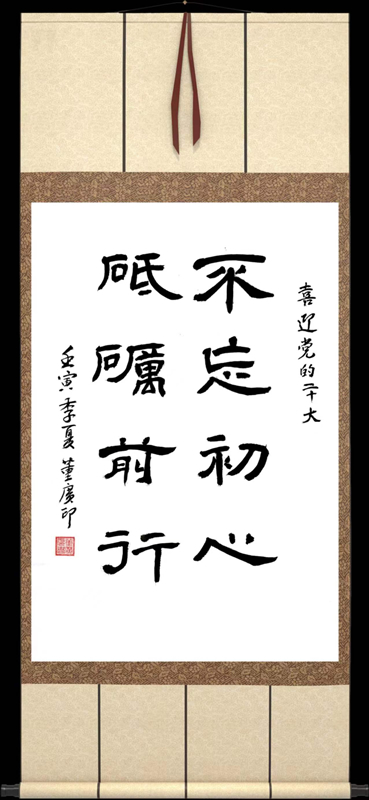 喜迎党的二十大
不忘初心
砥礪前行
壬寅季夏董廣印